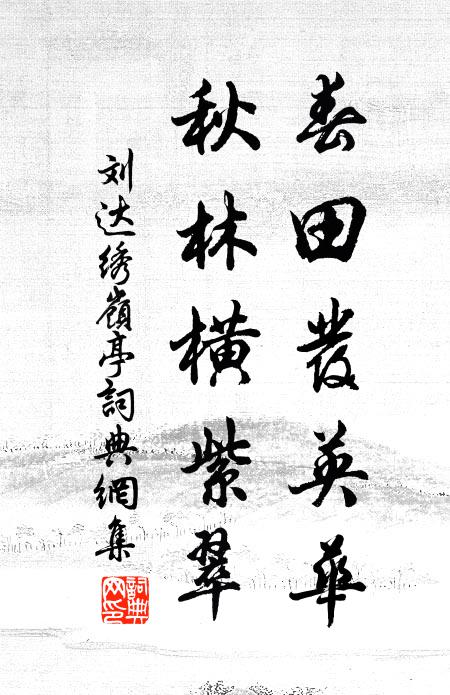 春田發英華
秋林橫紫翠
刘达绣嶺亭詞典網集
詞典網印